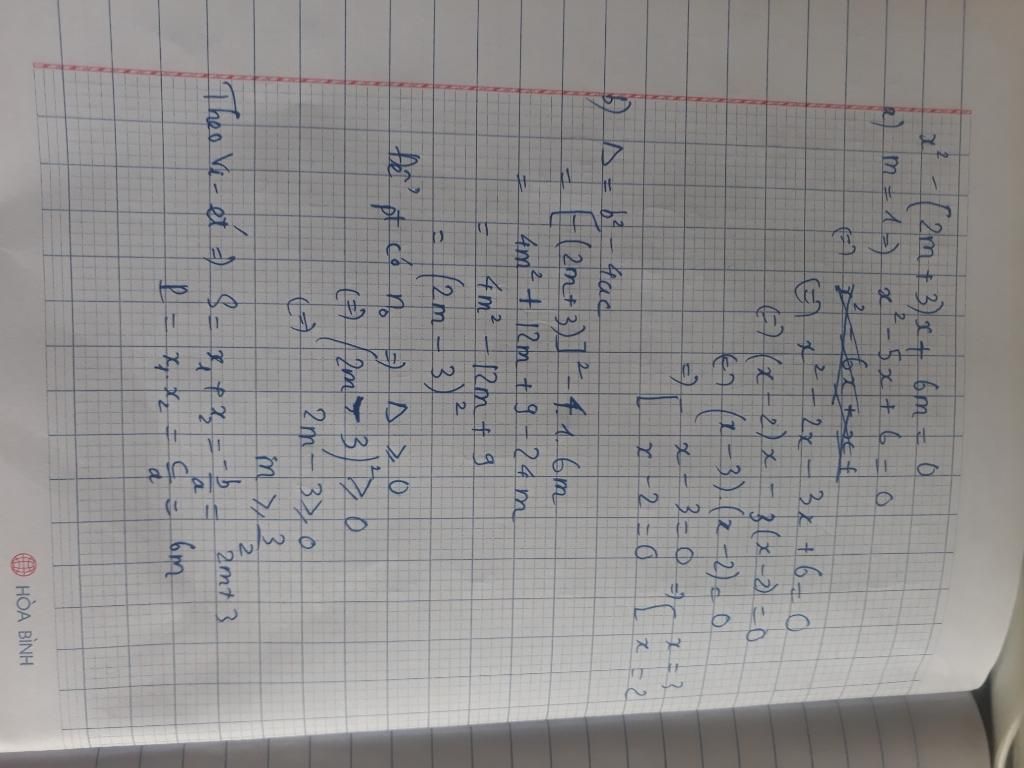 x² - (2m + 3)x + 6m = 0
a) m = 1 => x² - 5x + 6 = 0
(=) x² - 2x - 3x + 6 = 0
(=) (x - 2)x - 3(x - 2) = 0
(=) (x - 3)(x - 2) = 0
=) [ x - 3 = 0 => [ x = 3
[ x - 2 = 0 [ x = 2
b) Δ = b² - 4ac
= [-(2m + 3)]² - 4.1.6m
= 4m² + 12m + 9 - 24m
= 4m² - 12m + 9
= (2m - 3)²
Để pt có n₀ =) Δ ≥ 0
(=) (2m - 3)² ≥ 0
(=) 2m - 3 ≥ 0
m ≥ 3/2
Theo Vi-ét =) S = x₁ + x₂ = -b/a = 2m + 3
P = x₁x₂ = c/a = 6m
HÒA BÌNH